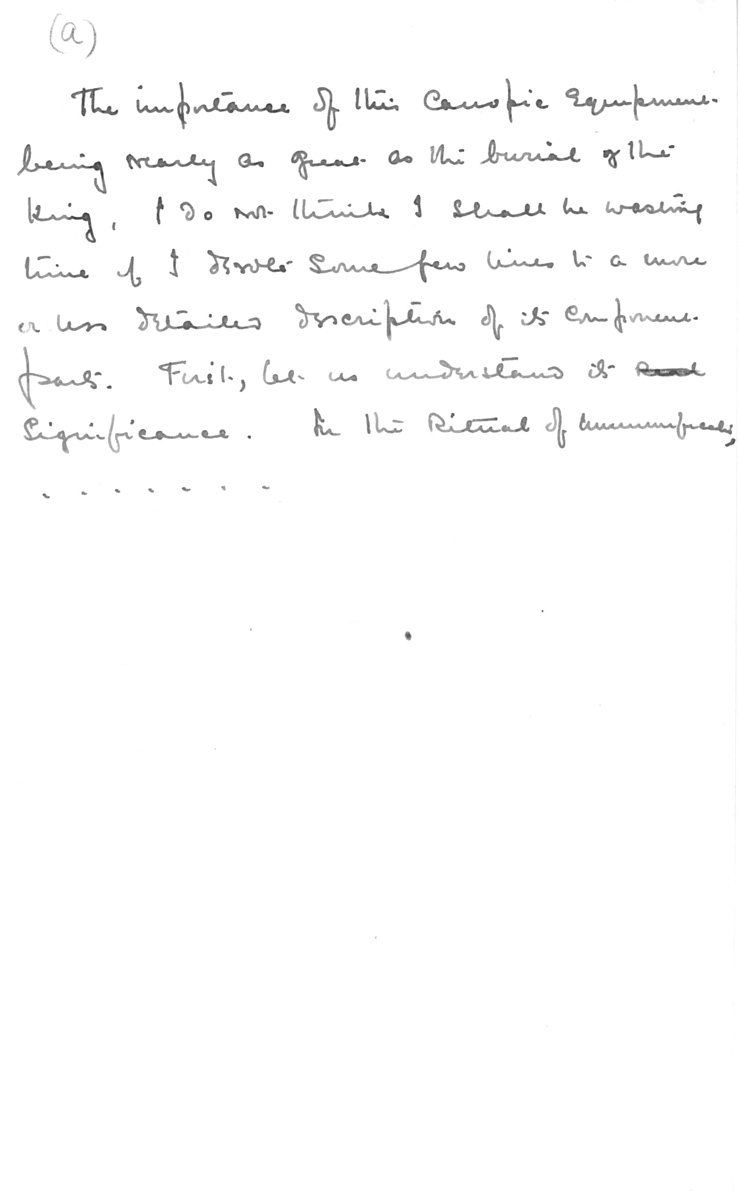 (a)
The importance of this Canopic Equipment
being nearly as great as the burial of the
King, I do not think I shall be wasting
time if I devote some few lines to a more
or less detailed description of its component
parts. First, let us understand its
Significance. In the Ritual of mummification,
. . . . . . .